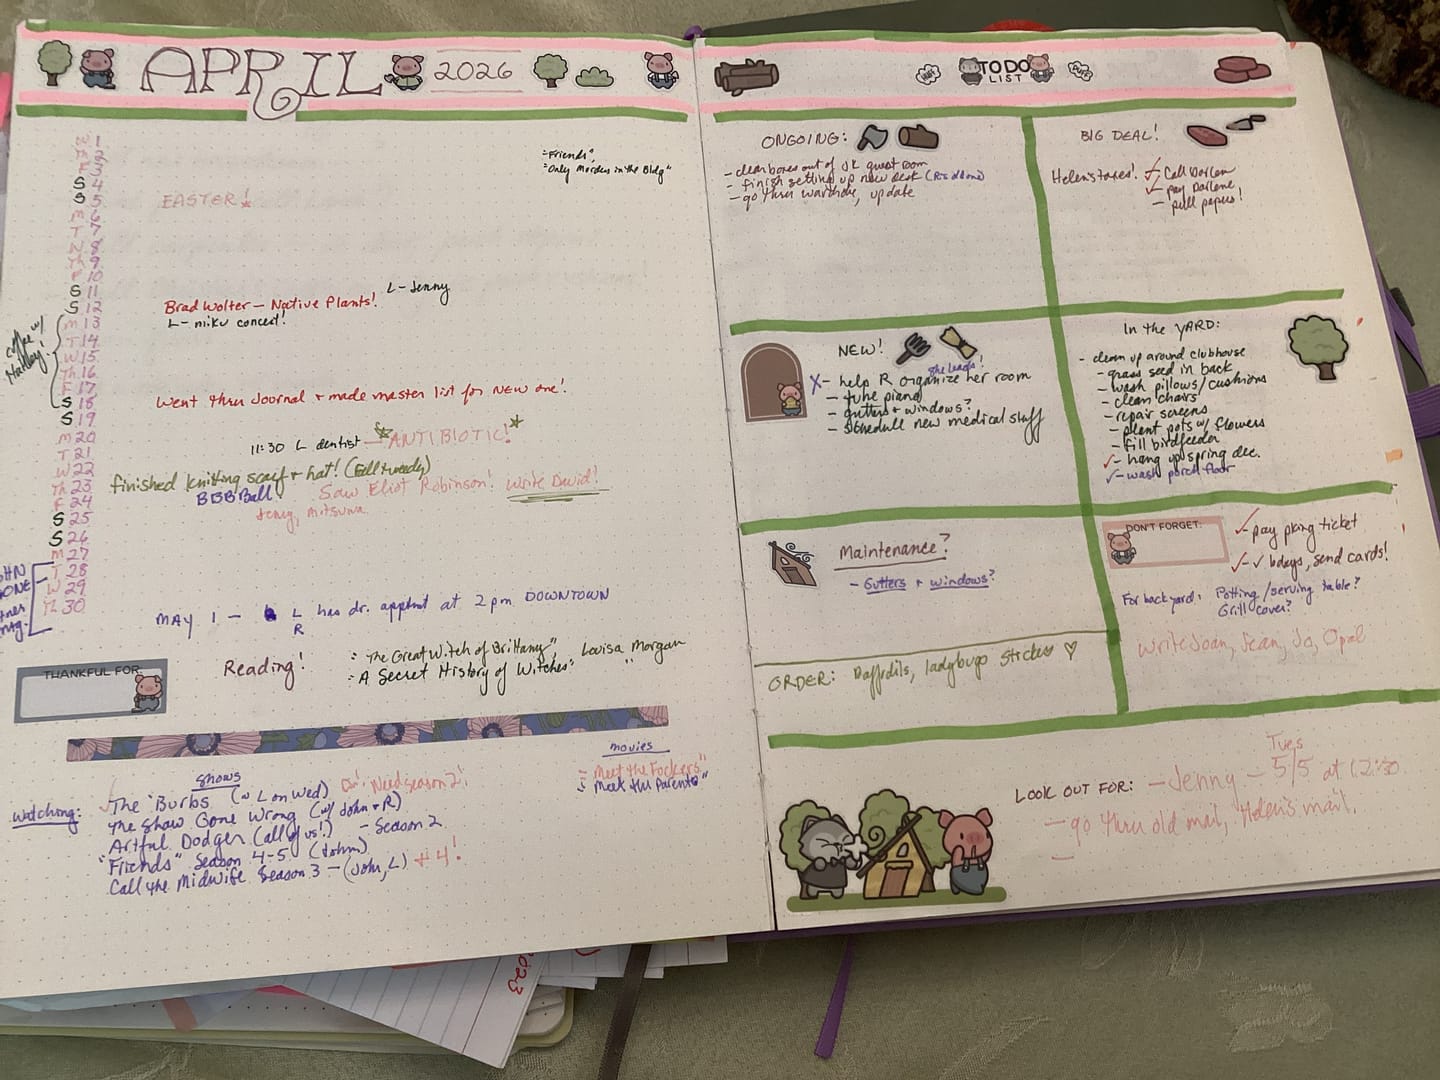 APRIL 2026
W 1
Th 2
F 3
S 4
S 5
M 6
T 7
W 8
Th 9
F 10
S 11
S 12
M 13
T 14
W 15
Th 16
F 17
S 18
S 19
M 20
T 21
W 22
Th 23
F 24
S 25
S 26
M 27
T 28
W 29
Th 30
"Friends",
"Only Murders in the Bldg"
EASTER!
L - Jenny
Brad Wolter - Native Plants!
L - miku concert!
coffee w/
Went thru Journal + made master list for NEW one!
11:30 L dentist - ANTIBIOTIC!
finished knitting scarf + hat! (Fall tweedy)
BBBBall
Saw Eliot Robinson! Write David!
mitsuwa
GONE
MAY 1 - L has dr. apptmt at 2 pm DOWNTOWN
R
THANKFUL FOR:
Reading!
"The Great Witch of Brittany", Louisa Morgan
"A Secret History of Witches" "
watching:
shows
The 'Burbs (w L on Wed) Need season 2!
The Show Gone Wrong (w/ John + R)
Artful Dodger (all of us!) - Season 2
"Friends" Season 4-5 (John)
Call the Midwife Season 3 - (John, L) #4!
movies
- "Meet the Fockers"
- "Meet the Parents"
HUFF TO DO LIST PUFF
ONGOING:
- clear boxes out of JK guest room
- finish setting up new desk
- go thru wardrobe, update
BIG DEAL!
Helen's taxes!
✓- Call Darlene
✓- pay Darlene
- pull papers!
NEW!
X- help R organize her room
She leads!
- tune piano
- gutters + windows?
- schedule new medical stuff
In the YARD:
- clean up around clubhouse
- grass seed in back
- wash pillows/cushions
- clean chairs
- repair screens
- plant pots w/ flowers
- fill birdfeeder
✓- hang up spring dec.
✓- wash porch floor
Maintenance?
- Gutters + windows?
DON'T FORGET:
✓- pay pking ticket
✓-✓ bdays, send cards!
For backyard: Potting/serving table?
Grill cover?
Write Joan, Jean, Jo, Opal
ORDER: Daffodils, ladybugs stickers ♡
LOOK OUT FOR:
- Jenny - Tues 5/5 at 12:30
- go thru old mail, Helen's mail.
-
2023